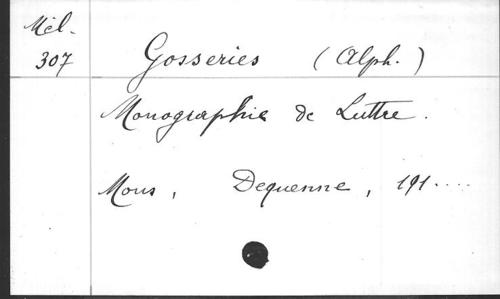 Mél.
307
Gosseries (Alph.)
Monographie de Luttre.
Mons, Dequenne, 191....